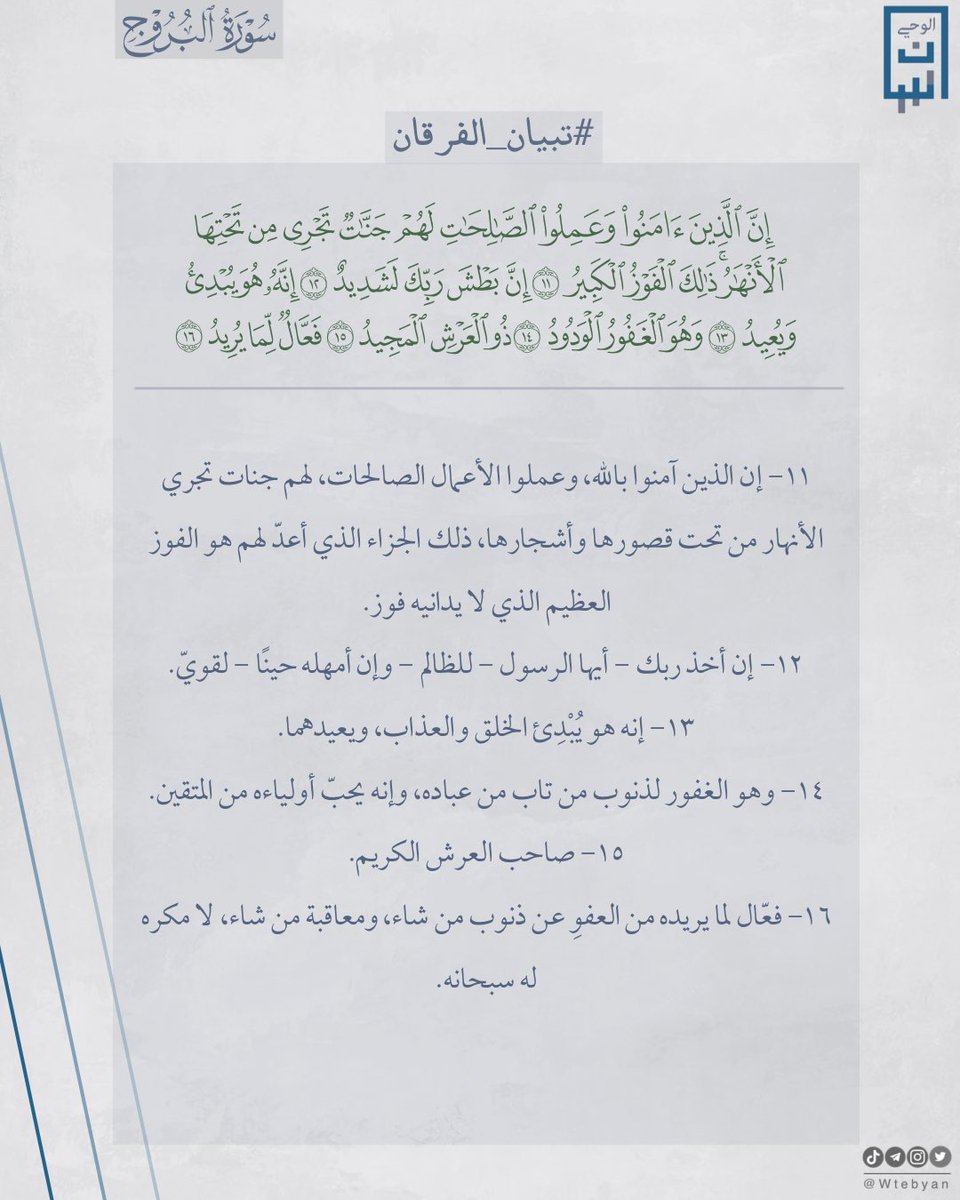 سُوْرَةُ الْبُرُوْجِ
الوحي
تبيان
#تبيان_الفرقان
إِنَّ ٱلَّذِينَ ءَامَنُوا۟ وَعَمِلُوا۟ ٱلصَّـٰلِحَـٰتِ لَهُمْ جَنَّـٰتٌ تَجْرِى مِن تَحْتِهَا
ٱلْأَنْهَـٰرُ ۚ ذَٰلِكَ ٱلْفَوْزُ ٱلْكَبِيرُ ١١ إِنَّ بَطْشَ رَبِّكَ لَشَدِيدٌ ١٢ إِنَّهُۥ هُوَ يُبْدِئُ
وَيُعِيدُ ١٣ وَهُوَ ٱلْغَفُورُ ٱلْوَدُودُ ١٤ ذُو ٱلْعَرْشِ ٱلْمَجِيدُ ١٥ فَعَّالٌ لِّمَا يُرِيدُ ١٦
١١- إن الذين آمنوا بالله، وعملوا الأعمال الصالحات، لهم جنات تجري
الأنهار من تحت قصورها وأشجارها، ذلك الجزاء الذي أعدّ لهم هو الفوز
العظيم الذي لا يدانيه فوز.
١٢- إن أخذ ربك - أيها الرسول - للظالم - وإن أمهله حينًا - لقويّ.
١٣- إنه هو يُبْدِئ الخلق والعذاب، ويعيدهما.
١٤- وهو الغفور لذنوب من تاب من عباده، وإنه يحبّ أولياءه من المتقين.
١٥- صاحب العرش الكريم.
١٦- فعّال لما يريده من العفوِ عن ذنوب من شاء، ومعاقبة من شاء، لا مكره
له سبحانه.
@Wtebyan